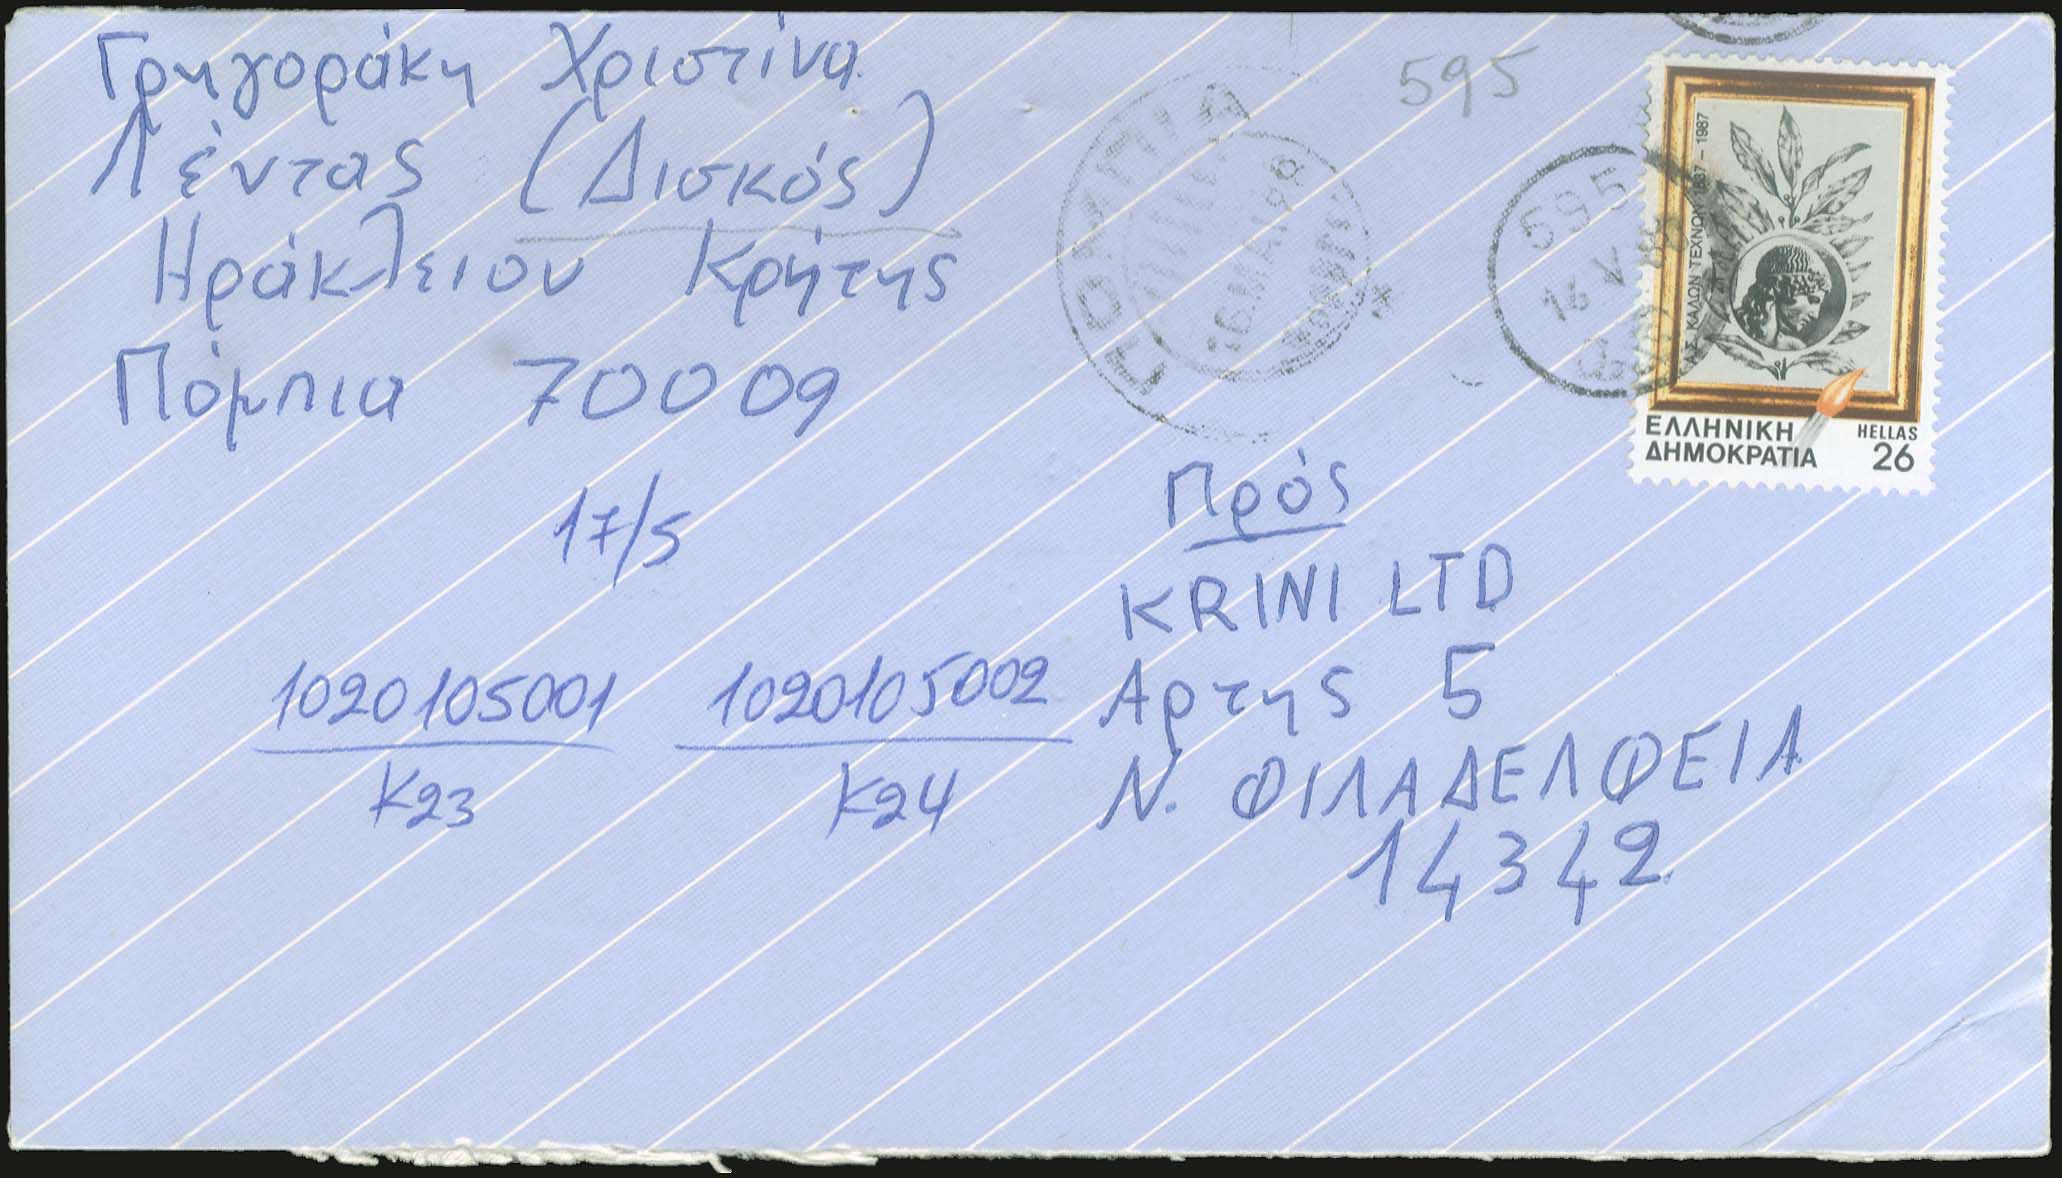 Γρηγοράκη Χριστίνα
Λέντας (Δισκός)
Ηράκλειου Κρήτης
Πόμπια 70009
595
ΠΟΜΠΙΑ
16 ΜΑΙ 88
595
16 V 88
ΚΑΛΩΝ ΤΕΧΝΩΝ 1837-1987
ΕΛΛΗΝΙΚΗ
ΔΗΜΟΚΡΑΤΙΑ
HELLAS
26
17/5
Πρός
KRINI LTD
Αρτης 5
Ν. ΦΙΛΑΔΕΛΦΕΙΑ
14342
1020105001
K23
1020105002
K24